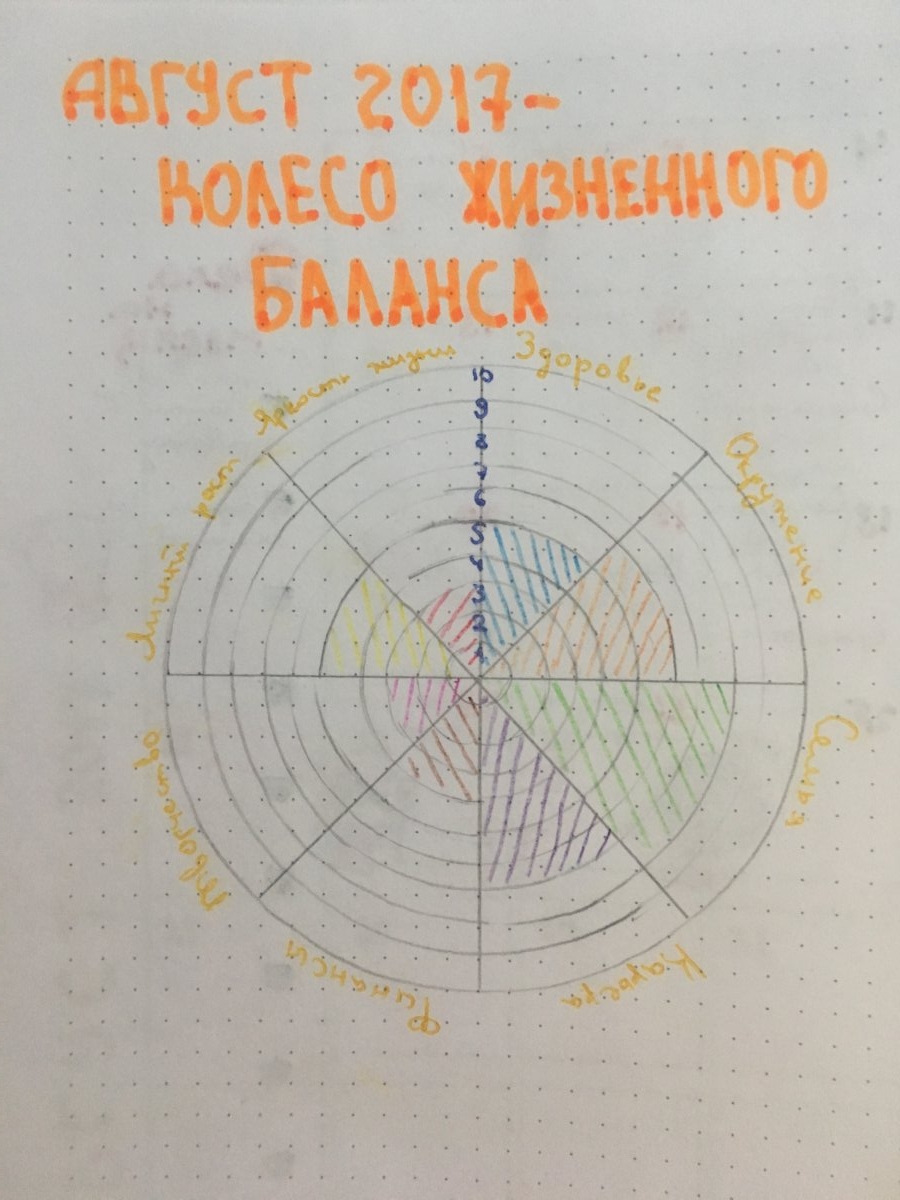 АВГУСТ 2017-
КОЛЕСО ЖИЗНЕННОГО
БАЛАНСА
Здоровье
Окружение
Семья
Карьера
Финансы
Творчество
Личный рост
Яркость жизни
10
9
8
7
6
5
4
3
2
1